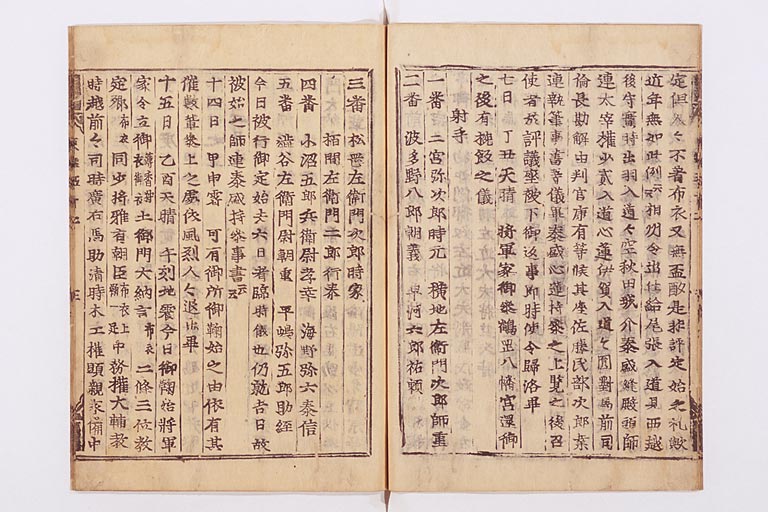 定但各々不著布衣又無盃酌是非評定始之礼歟
近年無如此例云々相州令出仕給尾張入道見西越
後守実時出羽入道々空秋田城介泰盛縫殿頭師
連太宰権少弐入道心蓮伊賀入道々円対馬前司
倫長勘解由判官康有等候其座佐藤民部次郎業
連執筆事書等儀畢泰盛心蓮持参之上覧之後召
使者於評議座被下御返事即時使令帰洛畢
七日 丁丑天晴 将軍家御参鶴岳八幡宮還御
之後有埦飯之儀
射手
一番 二宮弥次郎時元 横地左衛門次郎師重
二番 波多野八郎朝義 早河六郎祐頼
三番 松岡左衛門次郎時家
栢間左衛門二郎行泰
四番 小沼五郎兵衛尉孝幸 海野弥六泰信
五番 渋谷左衛門尉朝重 平嶋弥五郎助経
今日被行御定始去六日者臨時儀也仍就吉日故
被始之師連泰盛持参事書云々
十四日 甲申霽 可有御所御鞠始之由依有其
催数輩参上之處依風烈人々退出畢
十五日 乙酉天晴 午刻地震今日御鞠始将軍
家令立御 土御門大納言布衣 二條三位教
定 布衣 同少将雅有朝臣布衣上 中務権大輔教
時越前々司時広右馬助清時木工権頭親家備中